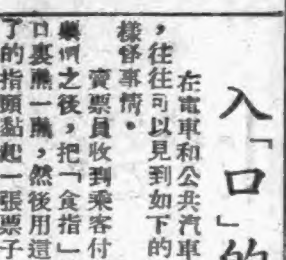 入「口」的
在電車和公共汽車
,往往可以見到如下的
樣怪事情。
賣票員收到乘客付
票之後,把「食指」
口裏蘸一蘸,然後用這
了的指頭黏起一張票子